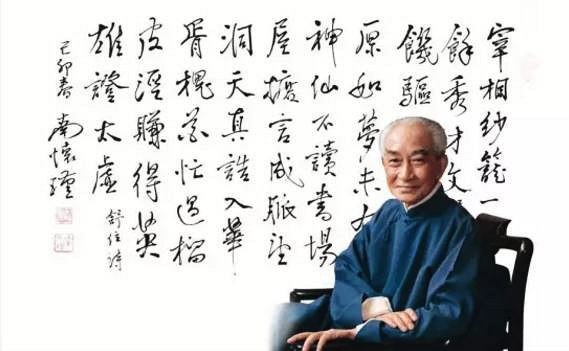 宰相紗籠一
餘秀才文
饑驅
原如夢未
神仙不讀書場
屋言成脈望
洞天真誥入華
胥槐花忙過榴
皮溼賺得英
雄證太虛
舒位詩
己卯春 南懷瑾